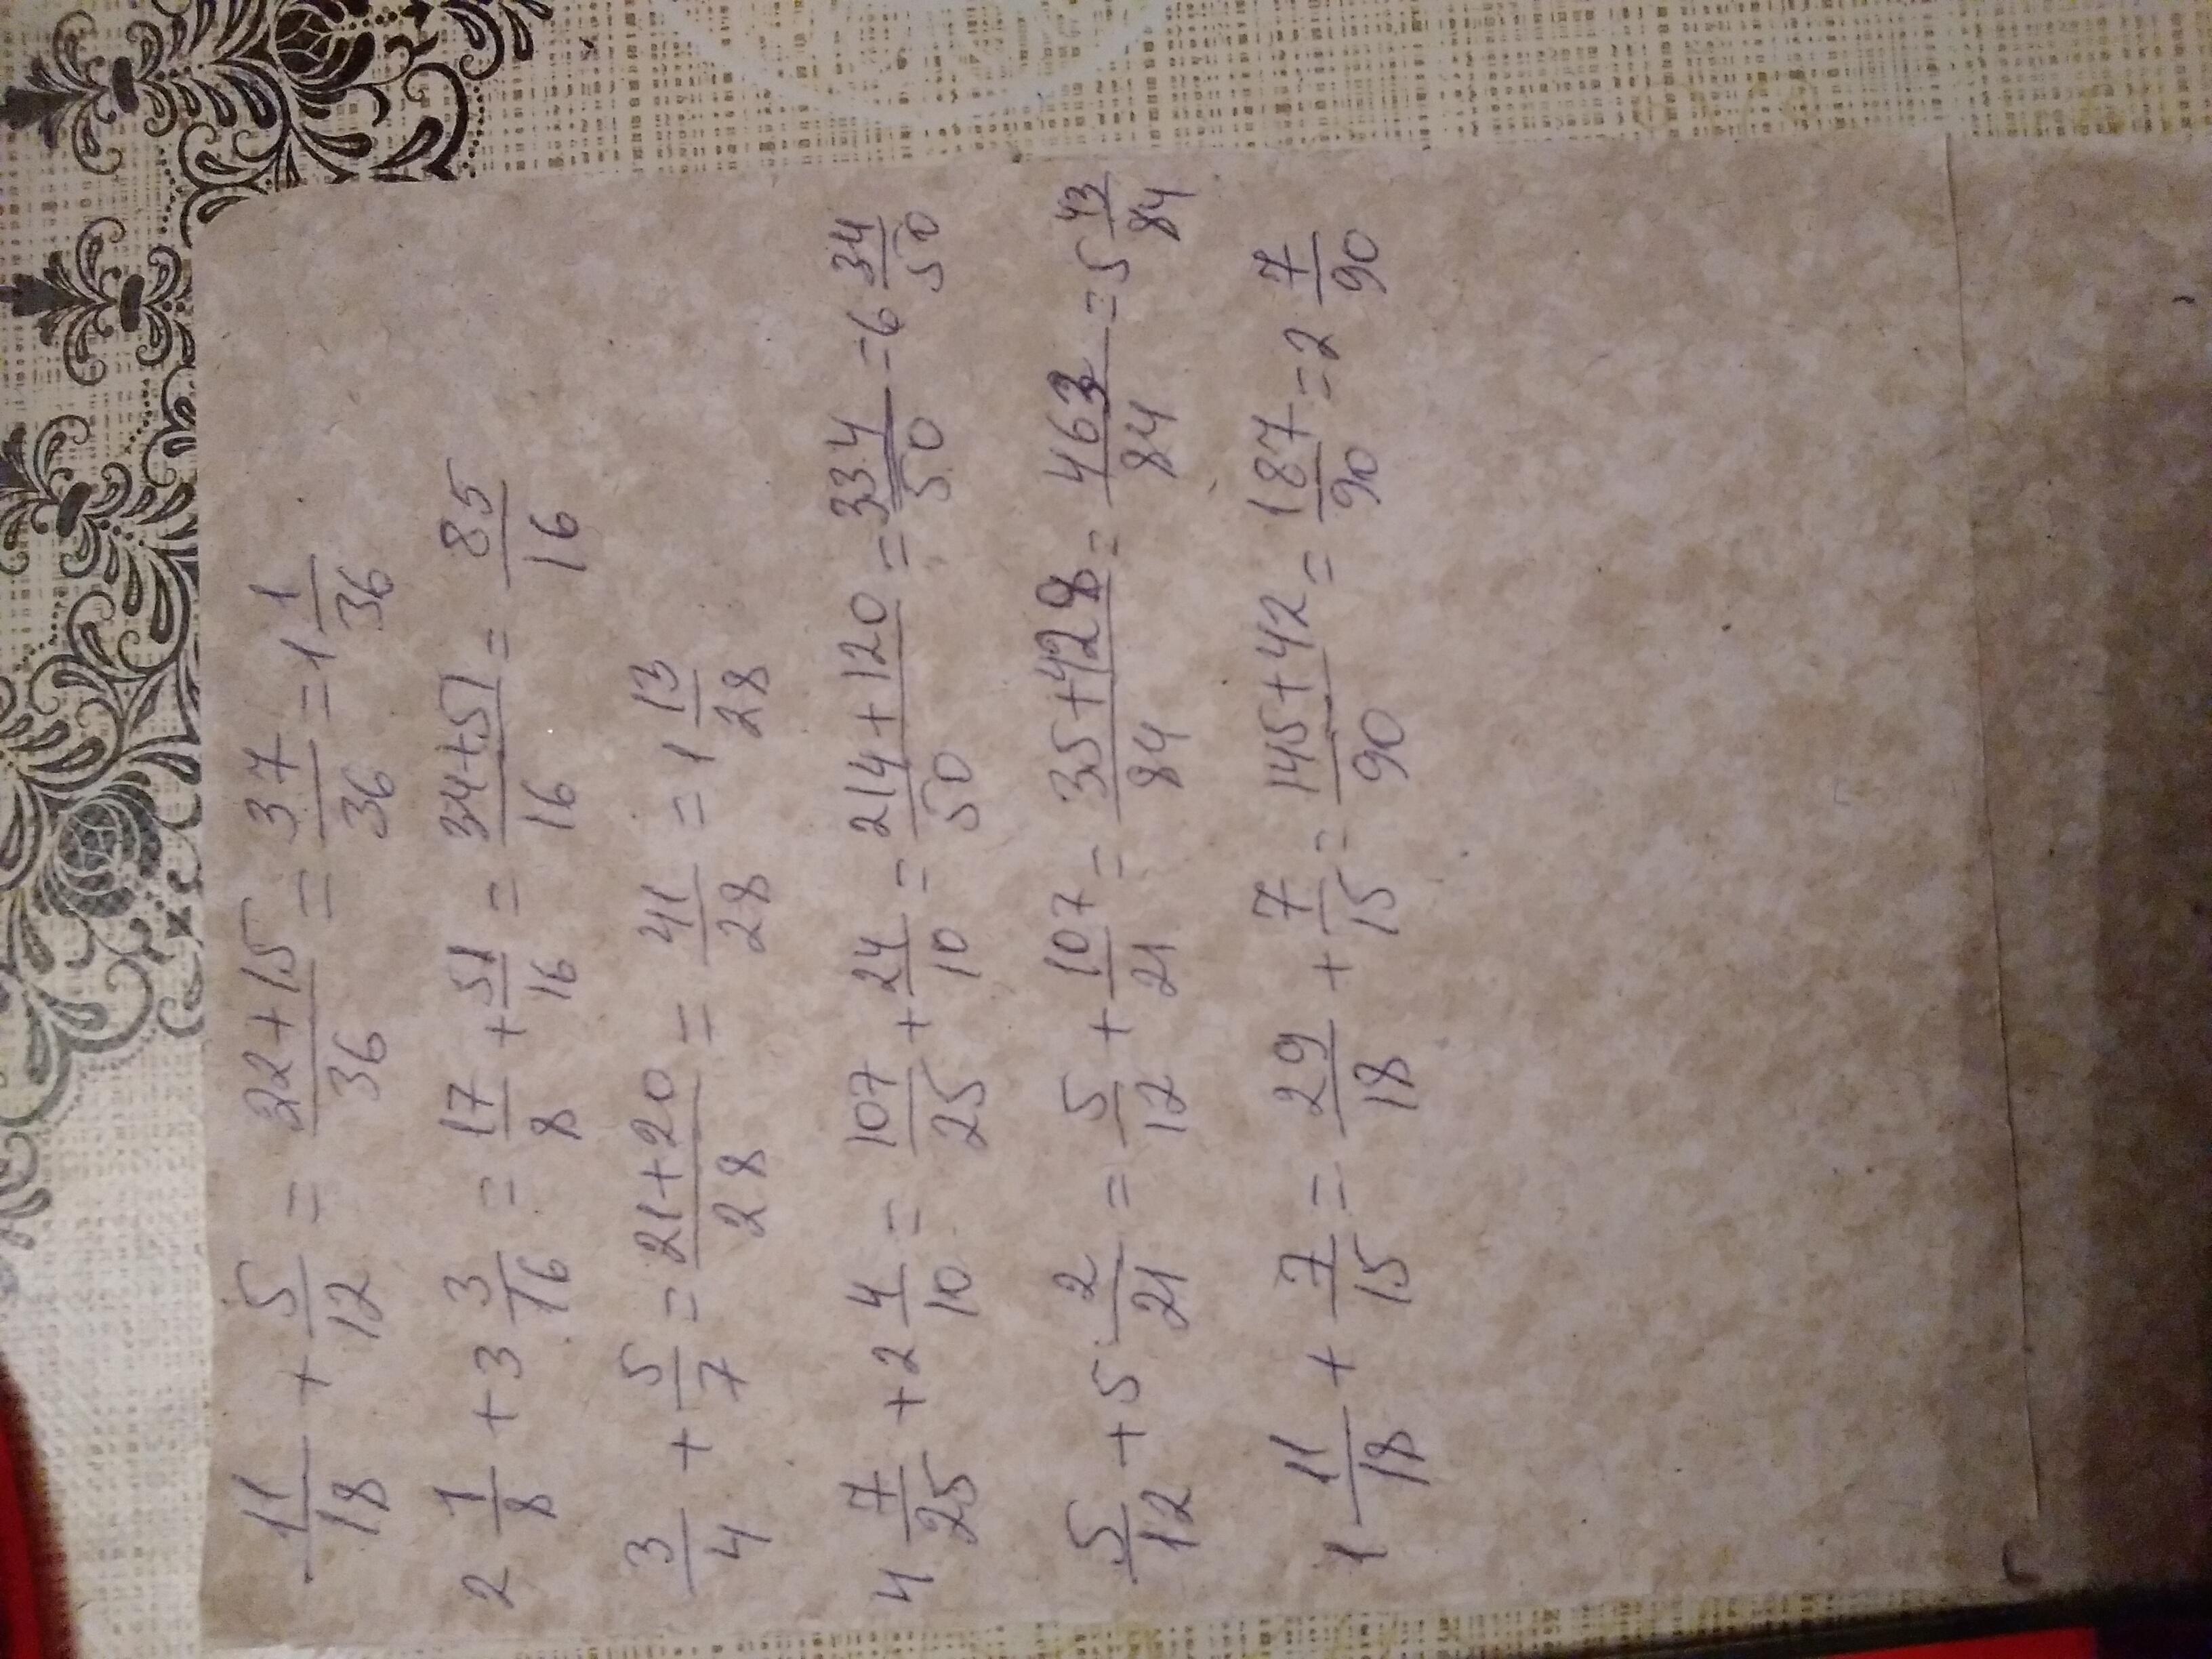 11/18 + 5/12 = 22+15/36 = 37/36 = 1 1/36
2 1/8 + 3 3/16 = 17/8 + 51/16 = 34+51/16 = 85/16
3/4 + 5/7 = 21+20/28 = 41/28 = 1 13/28
4 7/25 + 2 4/10 = 107/25 + 24/10 = 214+120/50 = 334/50 = 6 34/50
5/12 + 5 2/21 = 5/12 + 107/21 = 35+428/84 = 463/84 = 5 43/84
1 11/18 + 7/15 = 29/18 + 7/15 = 145+42/90 = 187/90 = 2 7/90